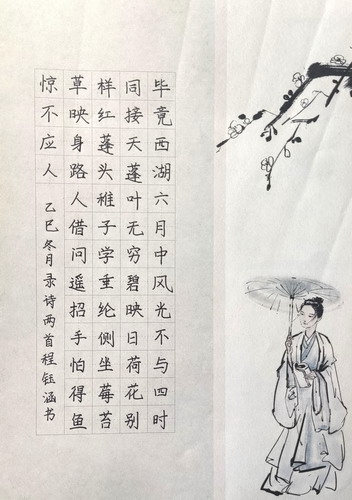 毕竟西湖六月中风光不与四时
同接天蓬叶无穷碧映日荷花别
样红蓬头稚子学垂纶侧坐莓苔
草映身路人借问遥招手怕得鱼
惊不应人 乙巳冬月录诗两首程钰涵书